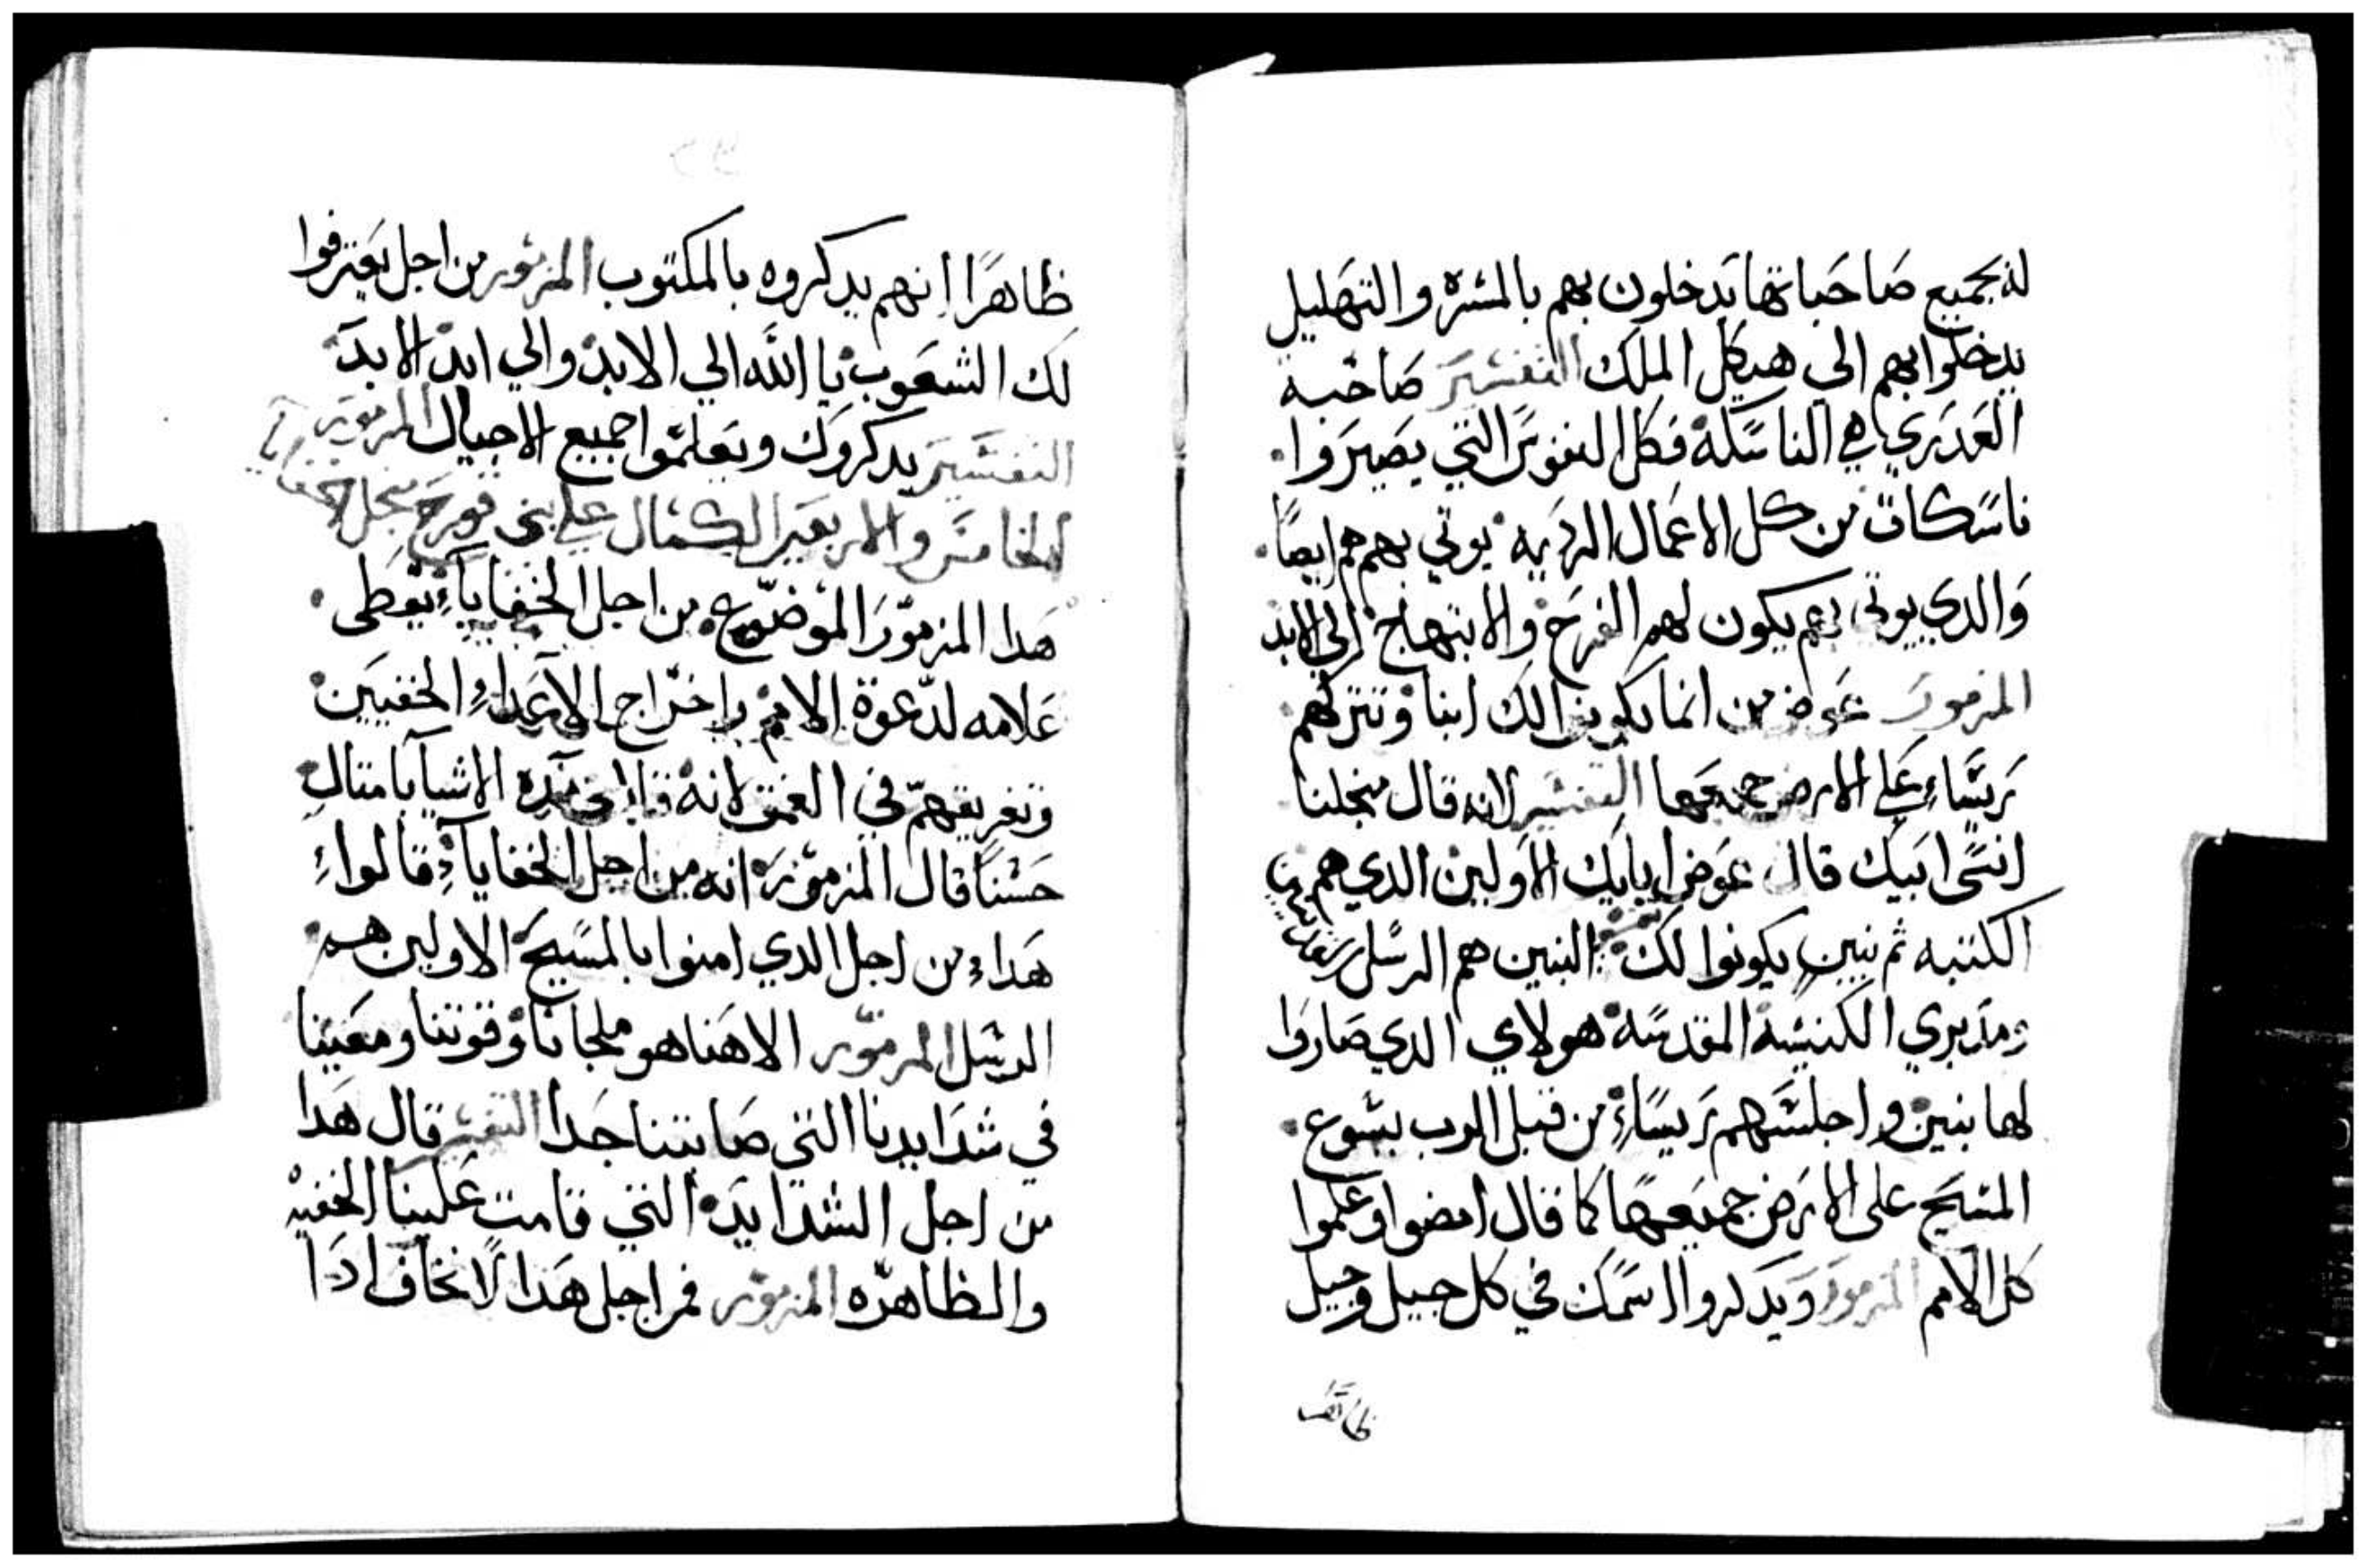 له جميع صاحباتها يدخلون بهم بالمسره والتهليل
يدخلوا بهم الي هيكل الملك التفسير صاحبة
العدري هي الناسكة فكل النفوس التي يصيروا
ناسكات من كل الاعمال الرديه يوتي بهم هم ايضا
والدي يوتي بهم يكون لهم الفرح والابتهاج الي الابد
المزمور عوض من اباىك يكونوا لك ابنا وتتركهم
ريسا علي الارض جميعها التفسير لانه قال من اجل
انسي ابيك قال عوض ابايك الاولين الدي هم
الكتبه ثم بنين يكونوا لك البنين هم الرسل
ومدبري الكنيسة المقدسة هولاي الدي صاروا
لها بنين واجلستهم ريسا من قبل الرب يسوع
المسيح على الارض جميعها كما قال امضوا وعلموا
كل الامم المزمور ويدكروا اسمك في كل جيل وجيل
ظاهرا
ظاهرا انهم يدكروه بالمكتوب المزمور من اجل يعترفوا
لك الشعوب يا الله الي الابد والي ابد الابد
التفسير يدكروك ويعلموا جميع الاجيال المزمور
الخامس والاربعين الكمال علي بني قورح من اجل الخفايا
هدا المزمور الموضوع من اجل الخفايا يعطى
علامه لدعوة الامم باخراج الاعدا الخفيين
وتغريقهم في العمق لانه قال هده الاشيا بامتال
حسنا قال المزمور انه من اجل الخفايا قالوا
هدا من اجل الدي امنوا بالمسيح الاولين هم
الرسل المزمور الاهنا هو ملجانا وقوتنا ومعيننا
في شدايدنا التي صابتنا جدا التفسير قال هدا
من اجل الشدايد التي قامت علينا الخفيه
والظاهره المزمور فمن اجل هدا لا نخاف ادا